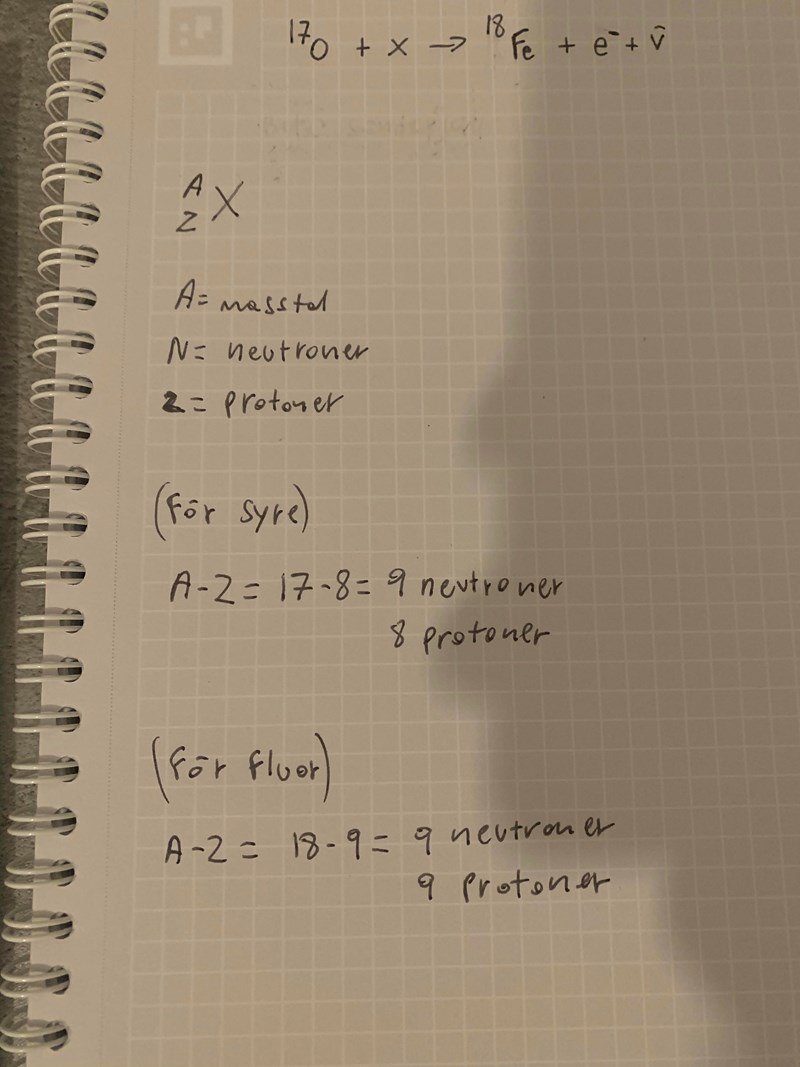 ¹⁷O + x → ¹⁸Fe + e⁻ + v̄
A
Z X
A= masstal
N= neutroner
Z= protoner
(För syre)
A-Z= 17-8= 9 neutroner
8 protoner
(För fluor)
A-Z= 18-9= 9 neutroner
9 protoner